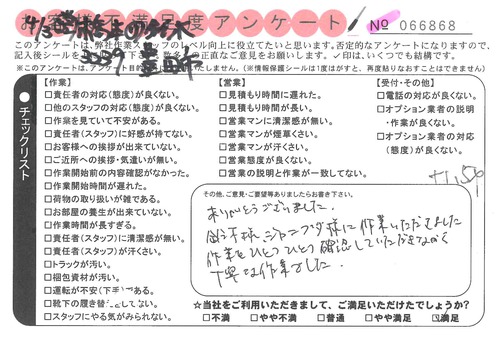 お客様不満足度アンケート
№ 066868
このアンケートは、弊社作業スタッフのレベル向上に役立てたいと思います。否定的なアンケートになりますので、
記入後シールを
正直なご意見をお願いします。✓印は、いくつでも結構です。
※このアンケートは、
いたしません。(※情報保護シールは1度はがすと、再度貼りなおすことはできません)
●チェックリスト
【作業】
□責任者の対応(態度)が良くない。
□他のスタッフの対応(態度)が良くない。
□作業を見ていて不安がある。
□責任者(スタッフ)に好感が持てない。
□お客様への挨拶が出来ていない。
□ご近所への挨拶・気遣いが無い。
□作業開始前の内容確認がなかった。
□作業開始時間が遅れた。
□荷物の取り扱いが雑である。
□お部屋の養生が出来ていない。
□作業時間が長すぎる。
□責任者(スタッフ)に清潔感が無い。
□責任者(スタッフ)が汗くさい。
□トラックが汚い。
□梱包資材が汚い。
□運転が不安(下手)である。
□靴下の履き替えしてない。
□スタッフにやる気がみられない。
【営業】
□見積もり時間に遅れた。
□見積もり時間が長い。
□営業マンに清潔感が無い。
□営業マンが煙草くさい。
□営業マンが汗くさい。
□営業態度が良くない。
□営業の説明と作業が一致してない。
【受付・その他】
□電話の対応が良くない。
□オプション業者の説明
・作業が良くない。
□オプション業者の対応
(態度)が良くない。
その他、ご意見・ご要望等ありましたらお書き下さい。
ありがとうございました。
鈴木様、ジャンプダ様に作業いただきました
作業をひとつひとつ確認していただきながら
丁寧な作業でした。
☆当社をご利用いただきまして、ご満足いただけたでしょうか?
□不満 □やや不満 □普通 □やや満足 ☑満足